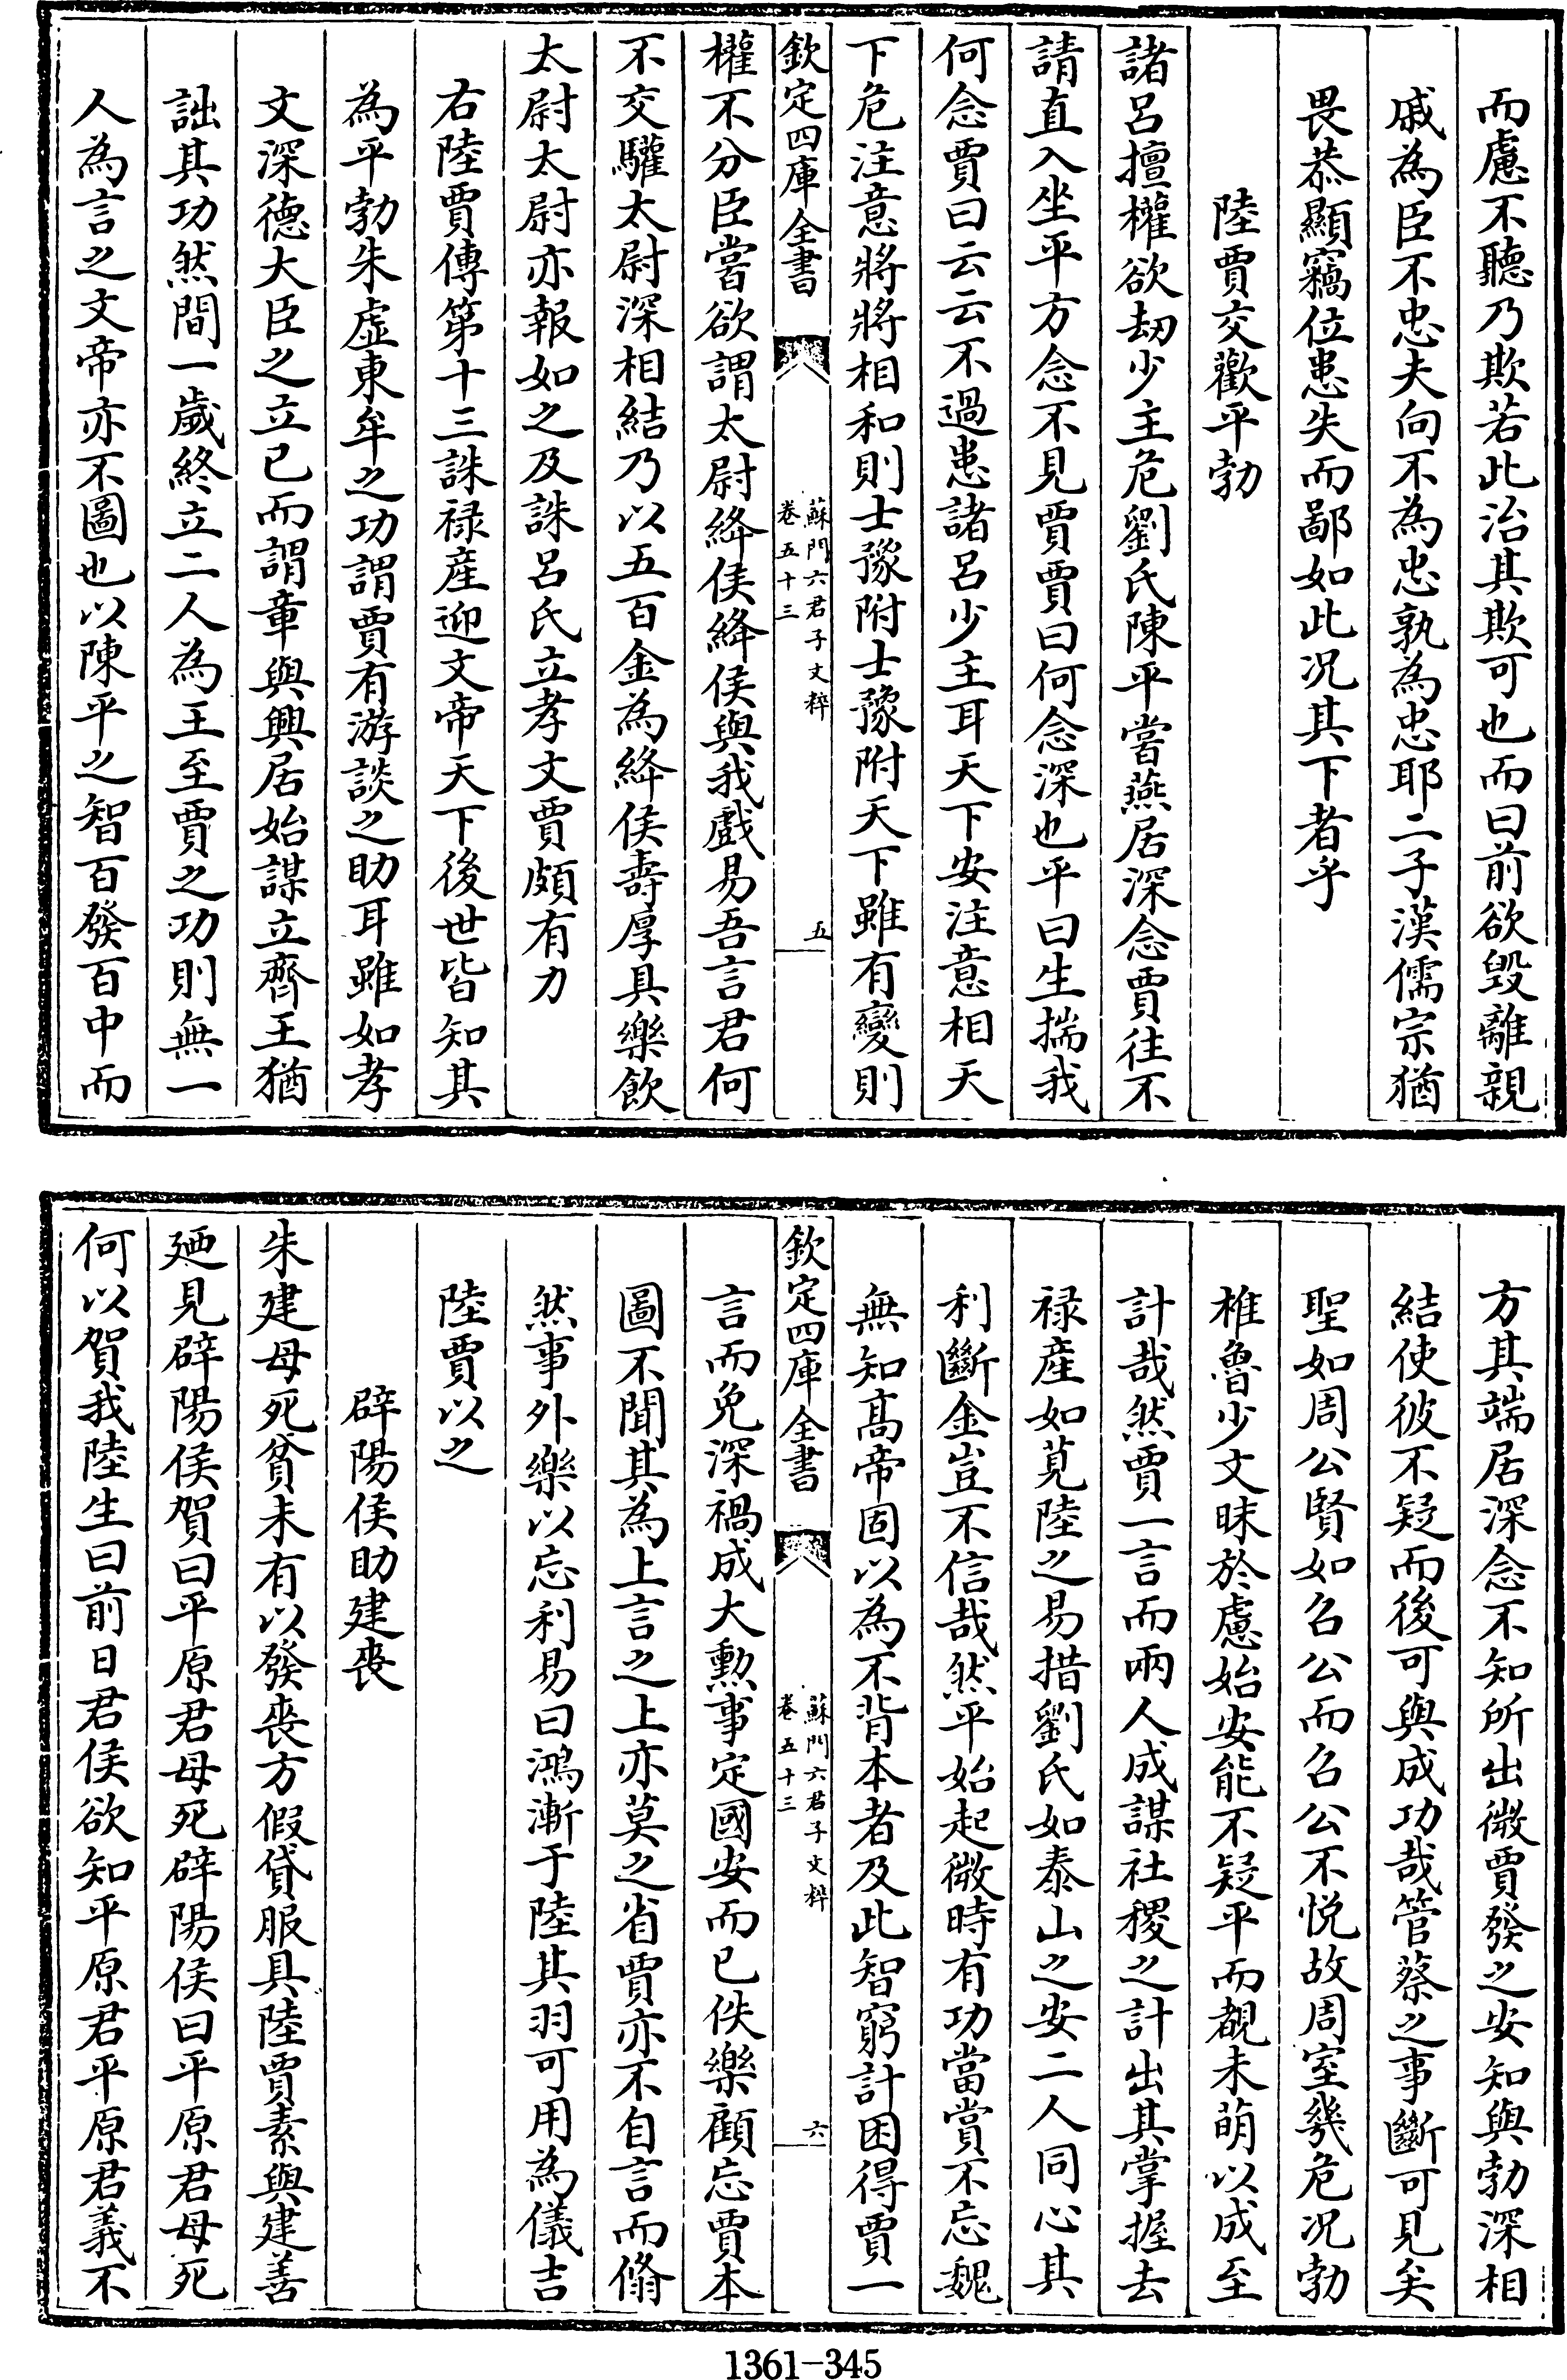 而慮不聽乃欺若此治其欺可也而曰前欲毀離親
戚為臣不忠夫向不為忠孰為忠耶二子漢儒宗猶
畏恭顯竊位患失而鄙如此况其下者乎
陸賈交歡平勃
諸呂擅權欲刼少主危劉氏陳平嘗燕居深念賈往不
請直入坐平方念不見賈賈曰何念深也平曰生揣我
何念賈曰云云不過患諸呂少主耳天下安注意相天
下危注意將將相和則士豫附士豫附天下雖有變則
欽定四庫全書
蘇門六君子文粹
卷五十三
五
權不分臣嘗欲謂太尉絳侯絳侯與我戲易吾言君何
不交驩太尉深相結乃以五百金為絳侯壽厚具樂飲
太尉太尉亦報如之及誅呂氏立孝文賈頗有力
右陸賈傳第十三誅禄産迎文帝天下後世皆知其
為平勃朱虛東牟之功謂賈有游談之助耳雖如孝
文深德大臣之立已而謂章與興居始謀立齊王猶
詘其功然間一歲終立二人為王至賈之功則無一
人為言之文帝亦不圖也以陳平之智百發百中而
方其端居深念不知所出微賈發之安知與勃深相
結使彼不疑而後可與成功哉管蔡之事斷可見矣
聖如周公賢如召公而召公不悦故周室幾危况勃
椎魯少文昧於慮始安能不疑平而覩未萌以成至
計哉然賈一言而兩人成謀社稷之計出其掌握去
禄産如莧陸之易措劉氏如泰山之安二人同心其
利斷金豈不信哉然平始起微時有功當賞不忘魏
無知高帝固以為不背本者及此智窮計困得賈一
欽定四庫全書
蘇門六君子文粹
卷五十三
六
言而免深禍成大勲事定國安而已佚樂顧忘賈本
圖不聞其為上言之上亦莫之省賈亦不自言而翛
然事外樂以忘利易曰鴻漸于陸其羽可用為儀吉
陸賈以之
辟陽侯助建喪
朱建母死貧未有以發喪方假貸服具陸賈素與建善
廼見辟陽侯賀曰平原君母死辟陽侯曰平原君母死
何以賀我陸生曰前日君侯欲知平原君平原君義不
1361-345